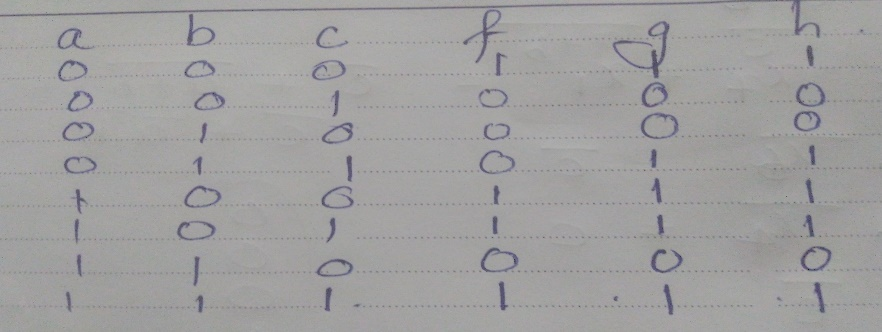 a b c f g h
0 0 0 1 1 1
0 0 1 0 0 0
0 1 0 0 0 0
0 1 1 0 1 1
1 0 0 1 1 1
1 0 1 1 1 1
1 1 0 0 0 0
1 1 1 1 1 1